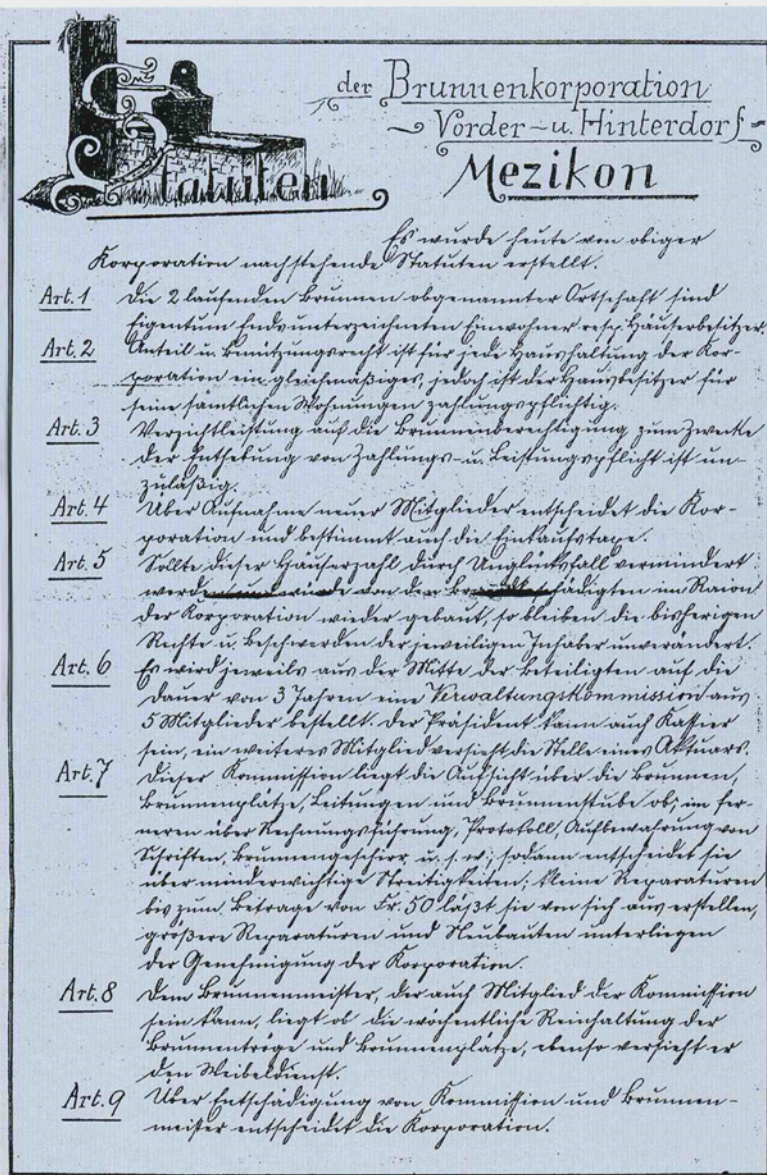 Statuten
der Brunnenkorporation
Vorder- u. Hinterdorf-
Mezikon
Es wurde heute von obiger
Korporation nachstehende Statuten erstellt.
Art. 1 Die 2 laufenden Brunnen obgenannter Ortschaft sind
Eigentum Endsunterzeichneten Einwohner resp. Häuserbesitzer.
Art. 2 Anteil u. Benützungsrecht ist für jede Haushaltung der Kor-
poration ein gleichmäßiges, jedoch ist der Hausbesitzer für
seine sämtlichen Wohnungen zahlungspflichtig.
Art. 3 Verzichtleistung auf die Brunnenberechtigung zum Zwecke
der Enthebung von Zahlungs- u. Leistungspflicht ist un-
zuläßig.
Art. 4 Über Aufnahme neuer Mitglieder entscheidet die Kor-
poration und bestimmt auch die Einkaufstaxe.
Art. 5 Sollte dieser Häuserzahl durch Unglücksfall vermindert
von den im Raion
der Korporation wieder gebaut, so bleiben die bisherigen
Rechte u. Beschwerden der jeweiligen Inhaber unverändert.
Art. 6 Es wird jeweils aus der Mitte der Beteiligten auf die
Dauer von 3 Jahren eine Verwaltungskommission aus
5 Mitglieder bestellt. Der Präsident kann auch Kassier
sein, ein weiteres Mitglied versieht die Stelle eines Aktuars.
Art. 7 Dieser Kommission liegt die Aufsicht über die Brunnen,
Brunnenplätze, Leitungen und Brunnenstube ob; im fer-
neren über Rechnungsführung, Protokoll, Aufbewahrung von
Schriften, Brunnengeschirr u. s. w.; sodann entscheidet sie
über minderwichtige Streitigkeiten; kleine Reparaturen
bis zum Betrage von Fr. 50 läßt sie von sich aus erstellen,
größere Reparaturen und Neubauten unterliegen
der Genehmigung der Korporation.
Art. 8 Dem Brunnenmeister, der auch Mitglied der Kommission
sein kann, liegt ob die wöchentliche Reinhaltung der
Brunnentröge und Brunnenplätze, ebenso versieht er
den Weibeldienst.
Art. 9 Über Entschädigung von Kommission und Brunnen-
meister entscheidet die Korporation.